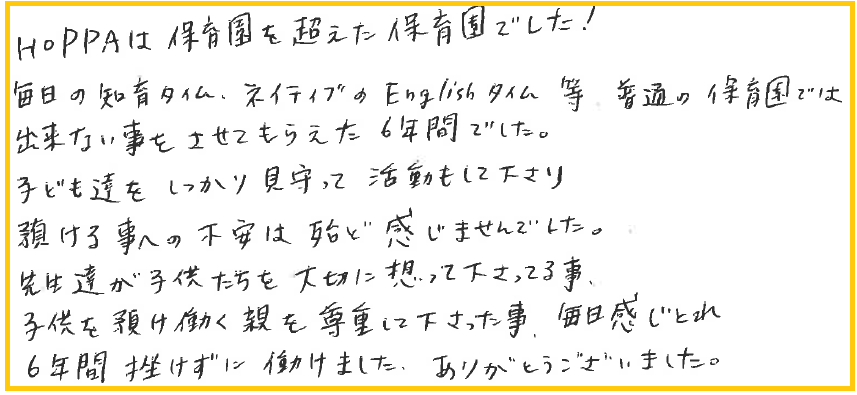 HOPPAは保育園を超えた保育園でした!
毎日の知育タイム、ネイティブのEnglishタイム等、普通の保育園では
出来ない事をさせてもらえた6年間でした。
子ども達をしっかり見守って活動もして下さり
預ける事への不安は殆ど感じませんでした。
先生達が子供たちを大切に想って下さってる事、
子供を預け働く親を尊重して下さった事、毎日感じとれ
6年間挫けずに働けました。ありがとうございました。